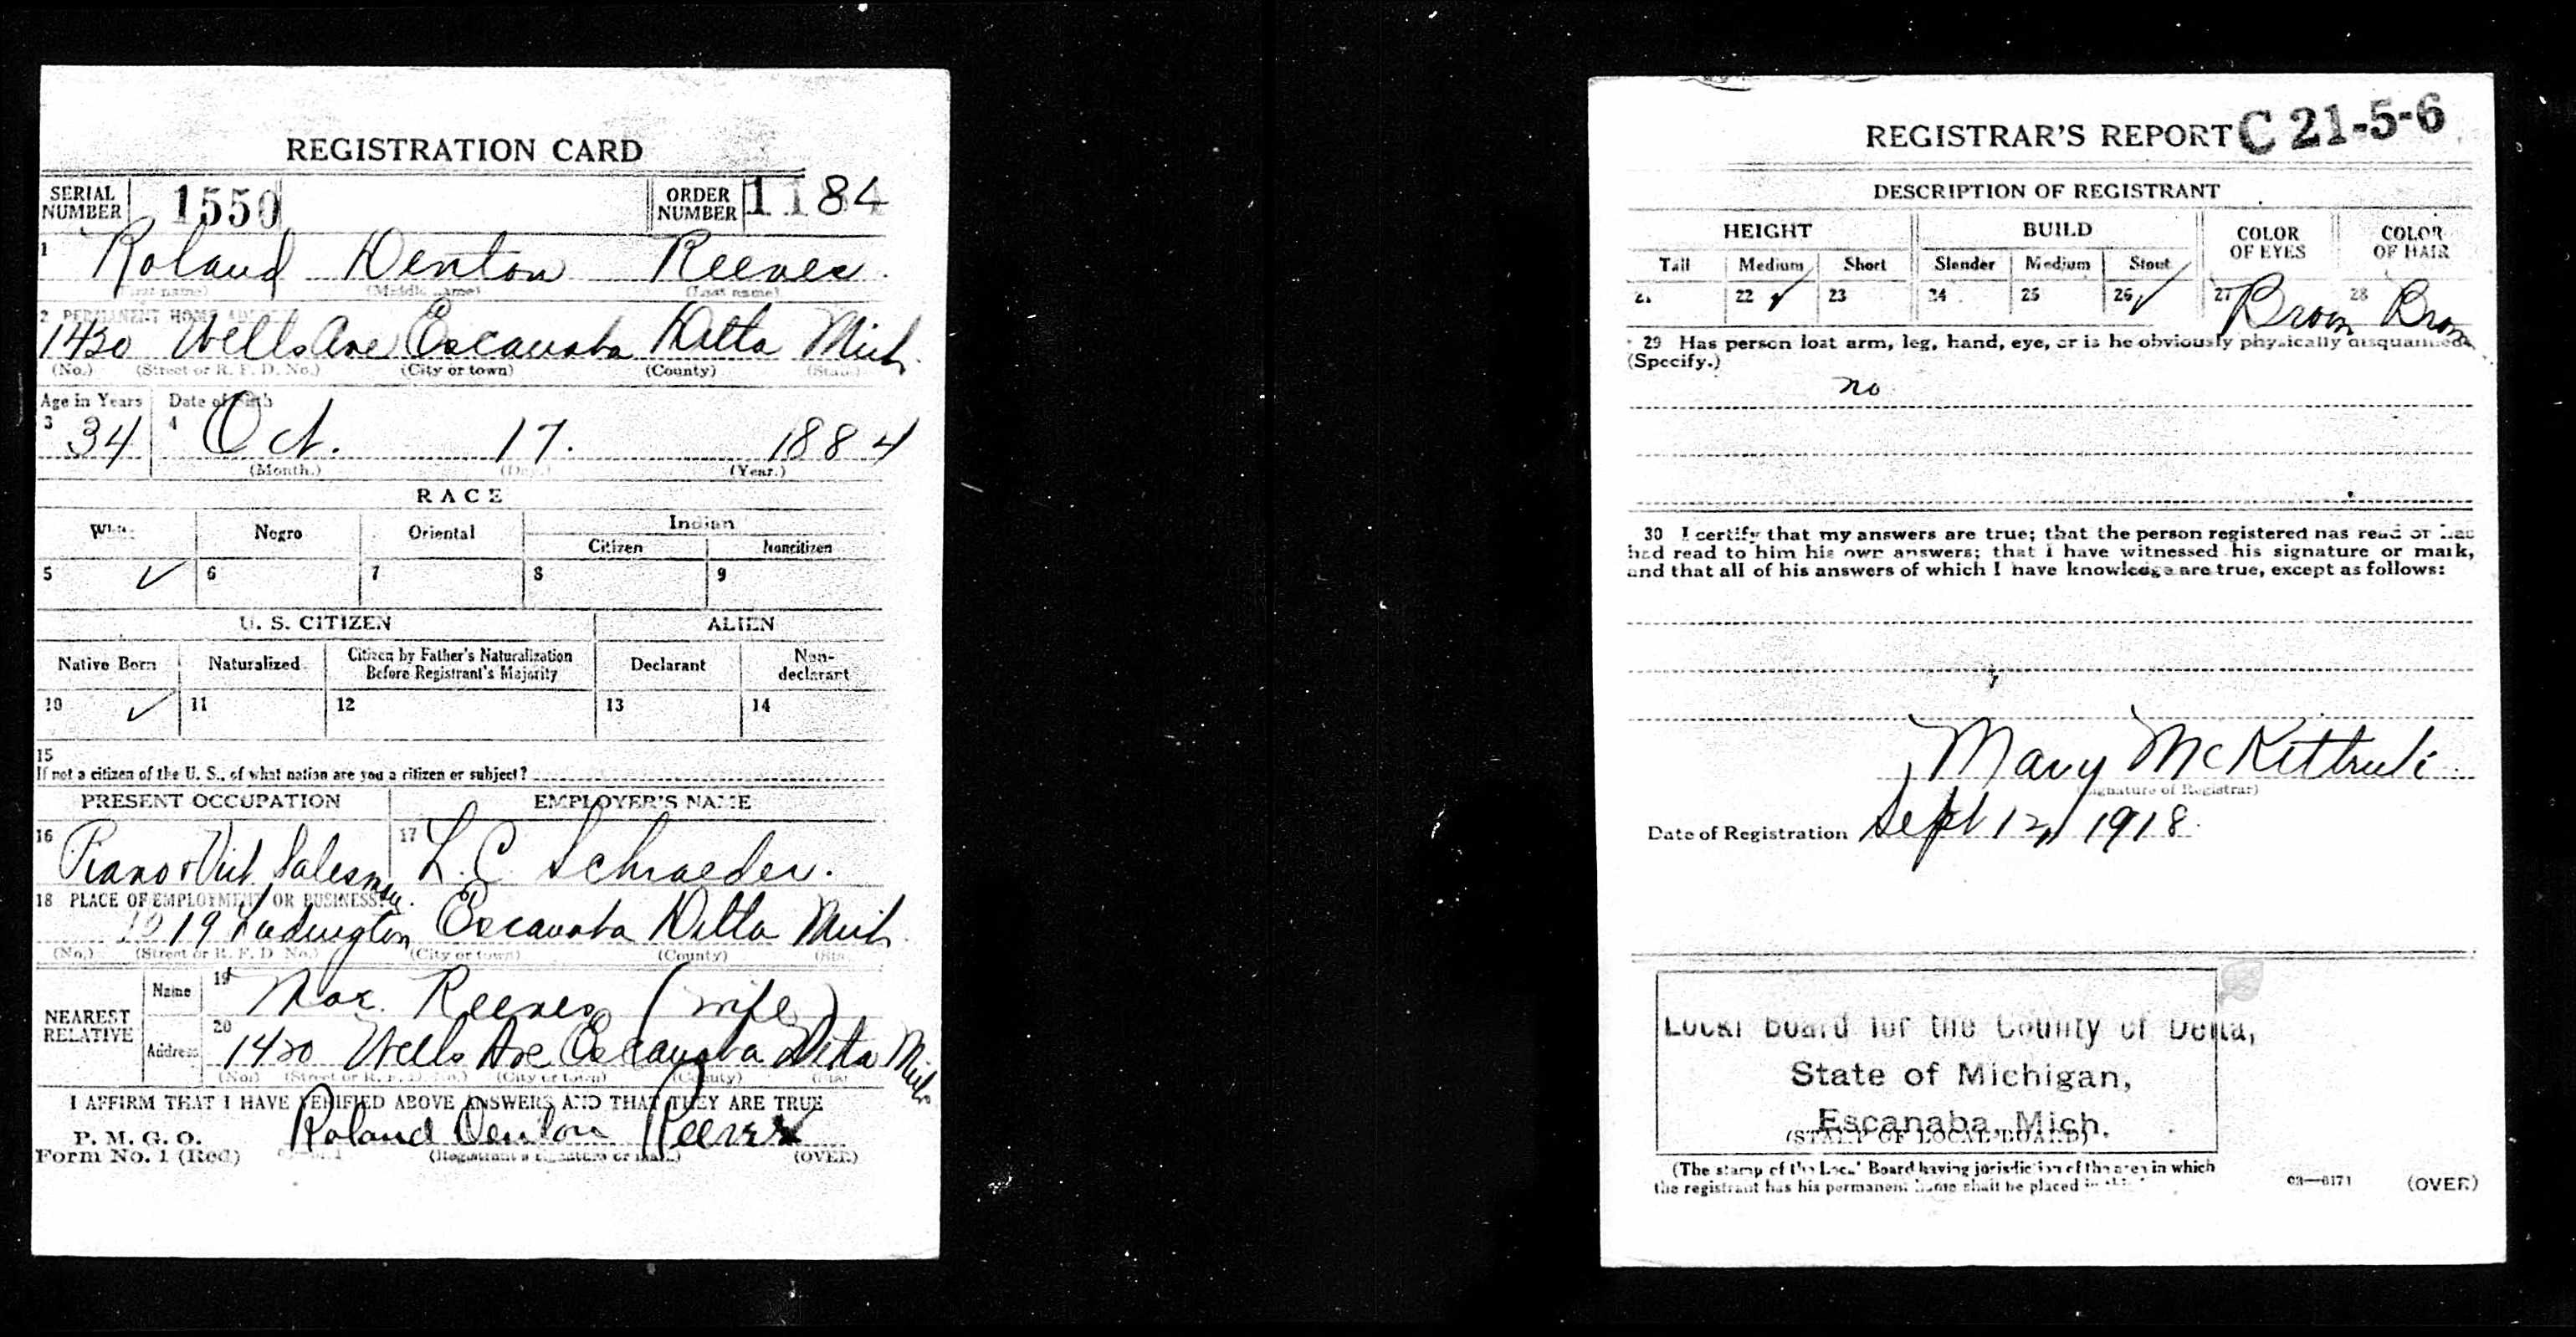 REGISTRATION CARD
SERIAL NUMBER 1550 ORDER NUMBER 1184
1 Roland Denton Reeves
(First name) (Middle name) (Last name)
2 PERMANENT HOME ADDRESS
1420 Wells Ave Escanaba Delta Mich.
(No.) (Street or R. F. D. No.) (City or town) (County) (State)
Age in Years Date of Birth
3 34 4 Oct. 17. 1884
(Month.) (Day.) (Year.)
RACE
White Negro Oriental Indian
Citizen Noncitizen
5 ✓ 6 7 8 9
U. S. CITIZEN ALIEN
Native Born Naturalized Citizen by Father's Naturalization Before Registrant's Majority Declarant Non-declarant
10 ✓ 11 12 13 14
15
If not a citizen of the U. S., of what nation are you a citizen or subject?
PRESENT OCCUPATION EMPLOYER'S NAME
16 Piano & Vict. Salesman 17 L. C. Schraeder.
18 PLACE OF EMPLOYMENT OR BUSINESS:
19 Ludington Escanaba Delta Mich.
(No.) (Street or R. F. D. No.) (City or town) (County) (State)
NEAREST RELATIVE
Name 19 Mae Reeves (wife)
Address 20 1420 Wells Ave Escanaba Delta Mich
(No.) (Street or R. F. D. No.) (City or town) (County) (State)
I AFFIRM THAT I HAVE VERIFIED ABOVE ANSWERS AND THAT THEY ARE TRUE
P. M. G. O.
Form No. 1 (Red) Roland Denton Reeves
(Registrant's signature or mark) (OVER)
REGISTRAR'S REPORT C 21-5-6
DESCRIPTION OF REGISTRANT
HEIGHT BUILD COLOR OF EYES COLOR OF HAIR
Tall Medium Short Slender Medium Stout
21 22 ✓ 23 24 25 26 ✓ 27 Brown 28 Brown
29 Has person lost arm, leg, hand, eye, or is he obviously physically disqualified?
(Specify.)
no
30 I certify that my answers are true; that the person registered has read or has
had read to him his own answers; that I have witnessed his signature or mark,
and that all of his answers of which I have knowledge are true, except as follows:
Mary McKittrick
(Signature of Registrar)
Date of Registration Sept 12, 1918
Local Board for the County of Delta,
State of Michigan,
Escanaba, Mich.
(STAMP OF LOCAL BOARD)
(The stamp of the Local Board having jurisdiction of the area in which
the registrant has his permanent home shall be placed in this
03—6171 (OVER)